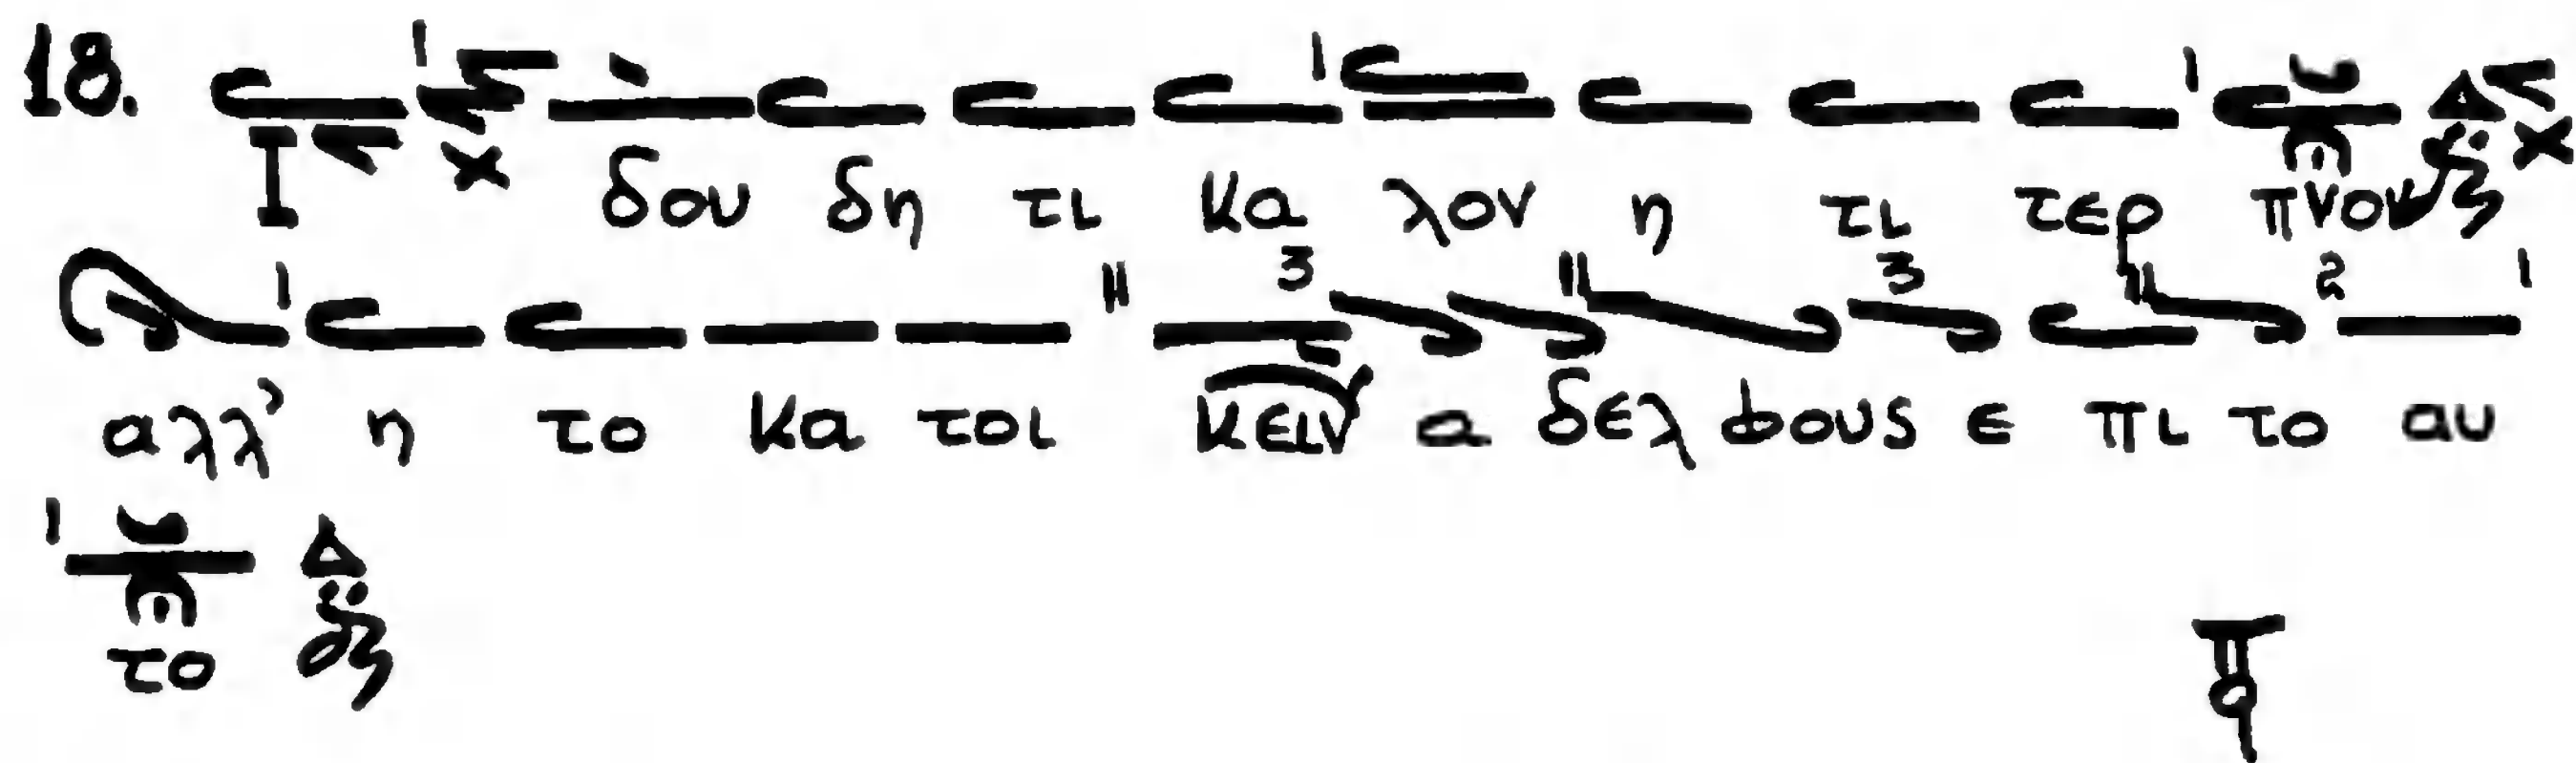 18.
Ι δου δη τι κα λον η τι τερ πνον
αλλ' η το κα τοι κειν α δελ φους ε πι το αυ
το